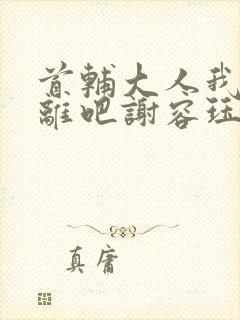 首輔大人我
離吧謝容珏
真庸